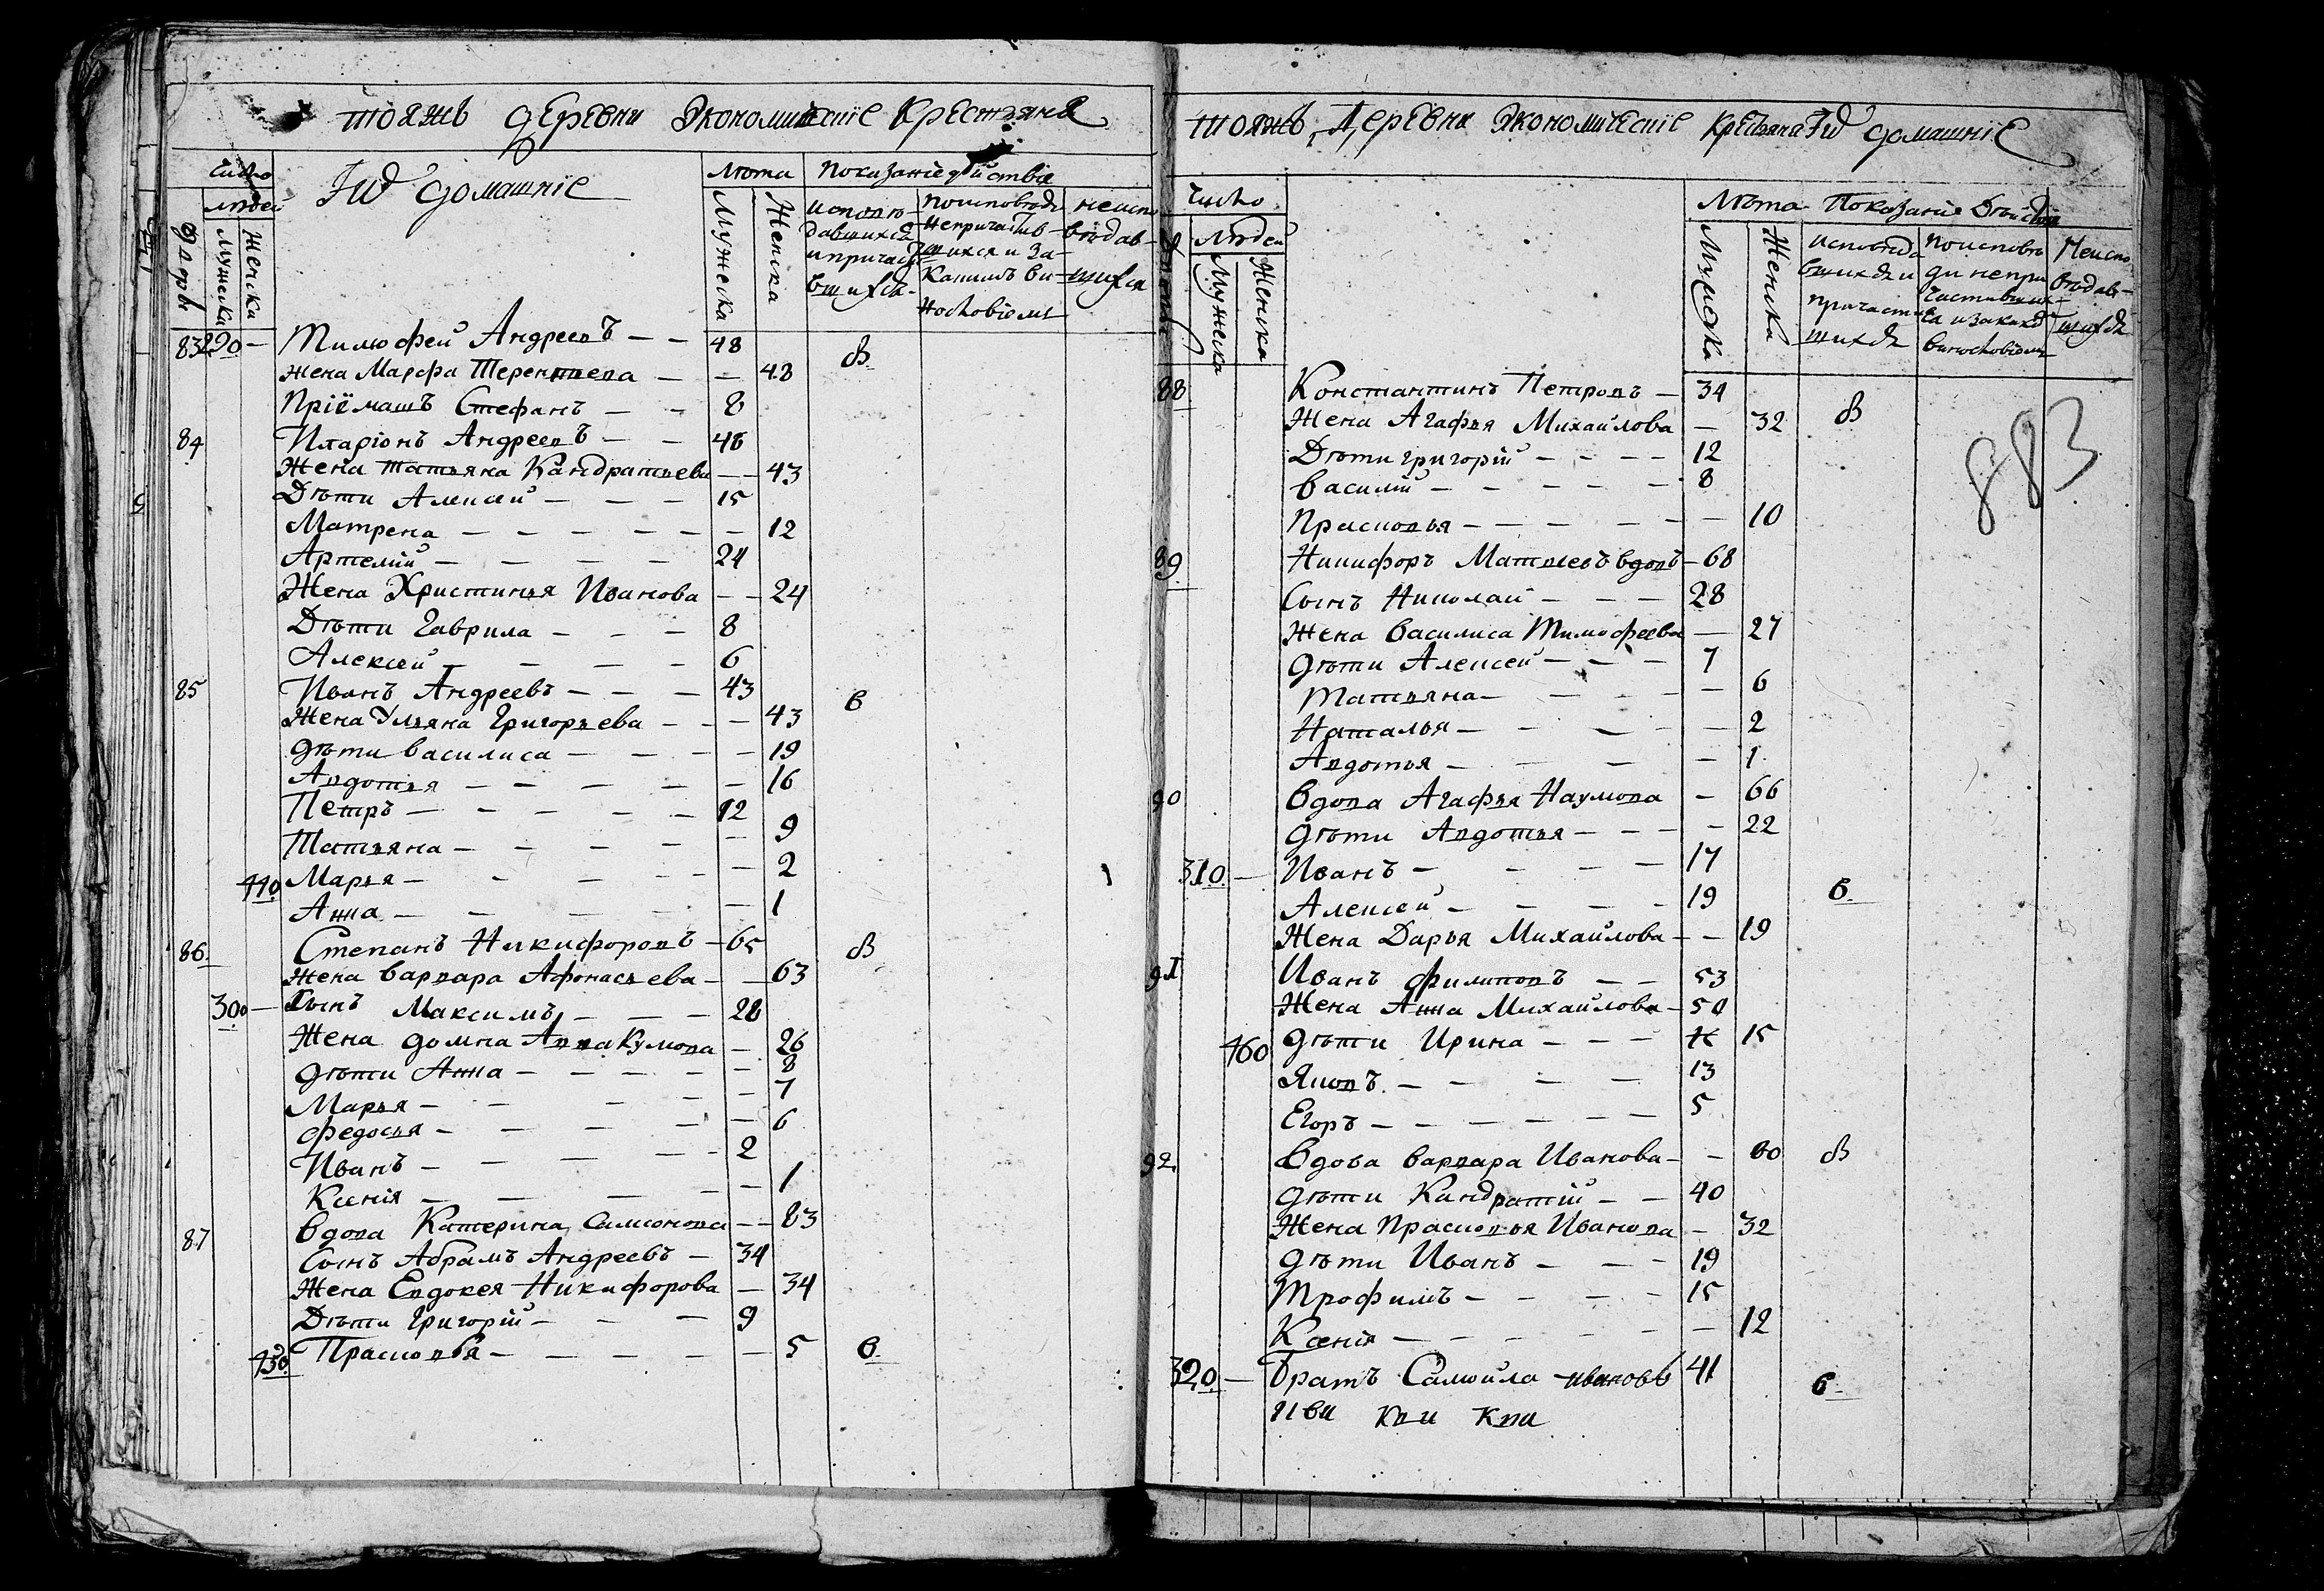 тояжъ деревни Экономическїе Крестьяня
число
людей
Дворы
Мужеска
Женска
И домашнїе
Лѣта
Мужеска
Женска
Показанїе дѣйствїя
исповѣ-
давшихся
и причасти-
вшихся
поисповѣди
непричастив-
шихся и за-
какимъ ви-
нословїемъ
неиспо
вѣдав-
шихся
83 290 — Тимофей Андреевъ — — 48 в
жена Марфа Терентьева — — 48
Прїёмашъ Стефанъ — — 8
84 Иларїонъ Андреевъ — — 46
Жена татьяна Кандратьева — — 43
Дѣти Алексей — — — 15
Матрена — — — — — — 12
Артемїй — — — — 24
Жена Христинья Иванова — — 24
Дѣти Гаврила — — — 8
Алексей — — — — 6
85 Иванъ Андреевъ — — — 43 в
Жена Ульяна Григорьева — — — 43
дѣти василиса — — — — 19
Авдотья — — — — — 16
Петръ — — — — — 12
Татьяна — — — — — 9
440 Марья — — — — — 2
Анна — — — — — 1
86 Степанъ Никифоровъ — 65 в
Жена варвара Афонасьева — — 63
300 — Сынъ Максимъ — — — 28
Жена домна Аввакумова — 26
дѣти Анна — — — — — 8
Марья — — — — — 7
Федосья — — — — — 6
Иванъ — — — — — 2
Ксенїя — — — — — 1
87 вдова Катерина Самсонова — — 83
Сынъ Абрамъ Андреевъ — 34
Жена Евдокея Никифорова — 34
Дѣти Григорїй — — — 9
450 Прасковья — — — — — 5 в
тояжъ Деревни Экономическїе крестьяня И домашнїе
Число
Людей
Мужеска
Женска
Лѣта
Мужеска
Женска
Показанїе Дѣйствїя
исповѣда
вшихся и
причасти
шихся
поисповѣ
ди непри
частивших
ся и закакимъ
винословїемъ
Неиспо
вѣдав-
шихся
883
88 Константинъ Петровъ — 34 в
Жена Агафья Михайлова — 32
Дѣти григорїй — — — — 12
василїй — — — — — 8
Прасковья — — — — — — 10
89 Никифоръ Матвеевъ вдовъ — 68
Сынъ Николай — — — 28
Жена василиса Тимофеева — 27
дѣти Алексей — — — 7
Татьяна — — — — — 6
Наталья — — — — — 2
Авдотья — — — — 1
90 вдова Агафья Наумова — 66
дѣти Авдотья — — — — 22
310 — Иванъ — — — — 17
Алексей — — — — 19 в
Жена Дарья Михайлова — — 19
91 Иванъ Филиповъ — — 53
Жена Анна Михайлова — 50
460 дѣти Ирина — — — 15
Яковъ — — — — 13
Егоръ — — — — — 5
92 вдова варвара Иванова — — 60 в
дѣти Кандратїй — — 40
Жена Прасковья Иванова — 32
дѣти Иванъ — — — 19
Трофимъ — — — — 15
Ксенїя — — — — — — 12
320 — Братъ Самойла ивановъ 41 в